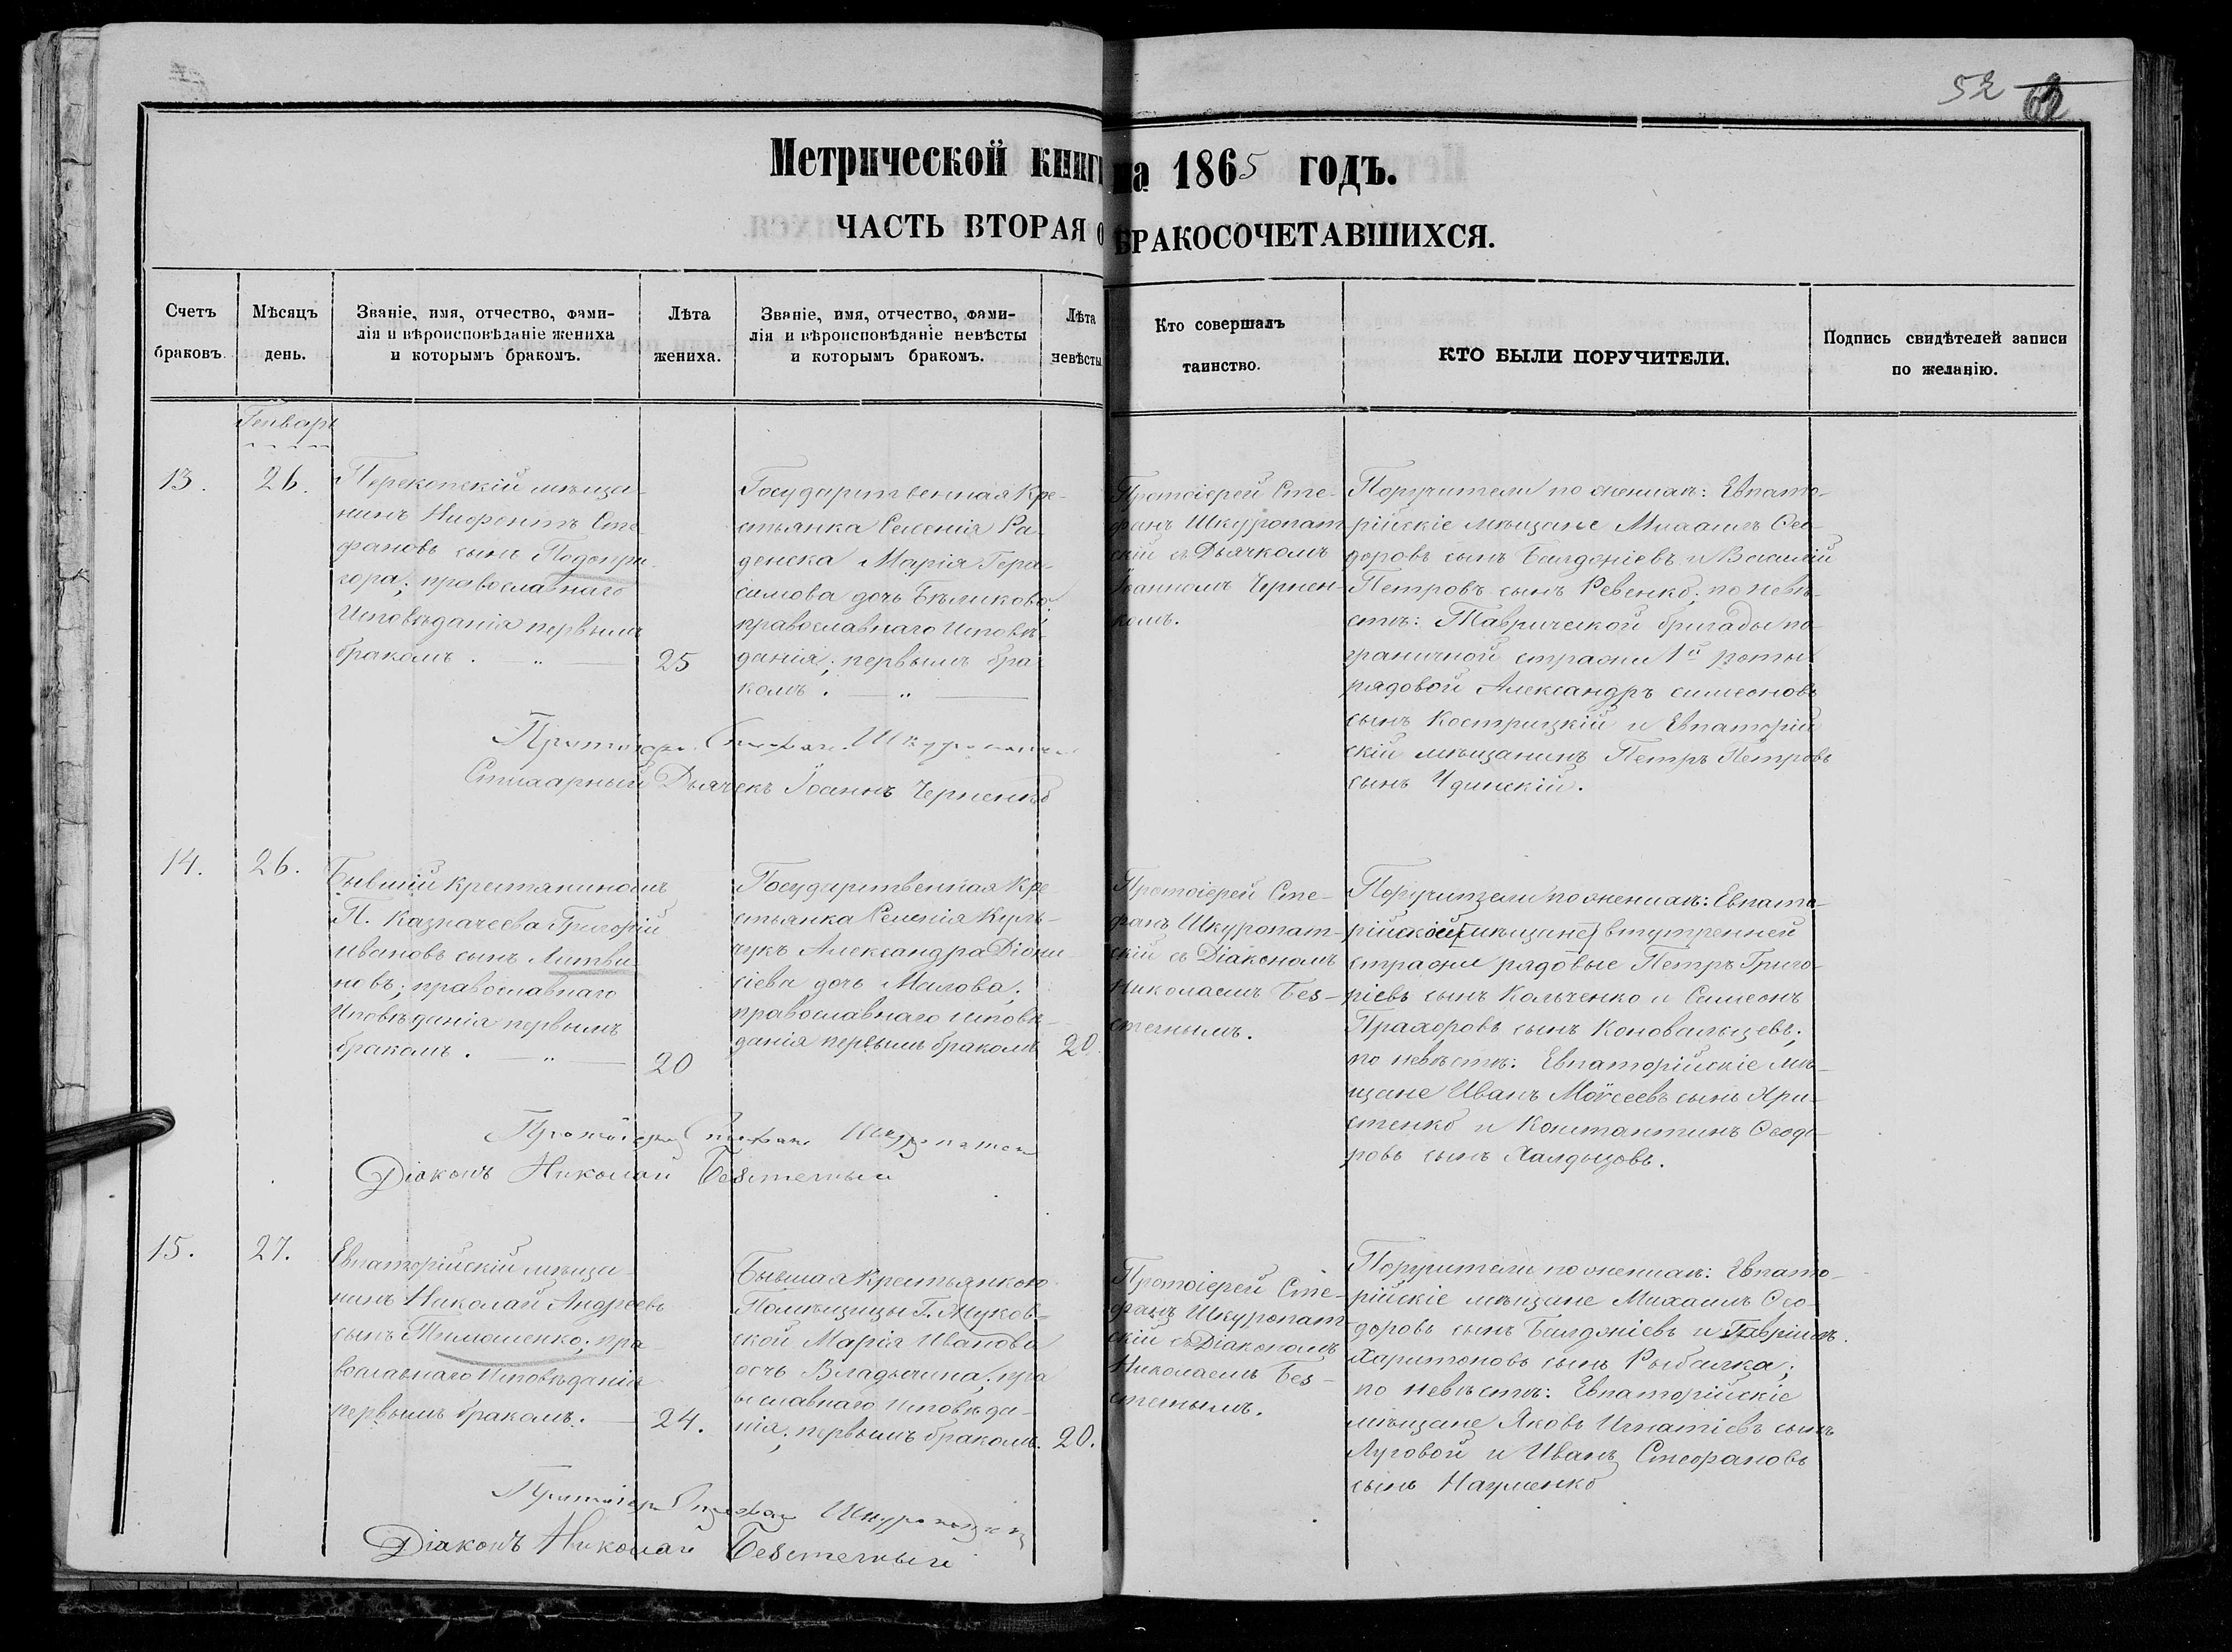 52 62
Метрической книги на 1865 годъ.
ЧАСТЬ ВТОРАЯ О БРАКОСОЧЕТАВШИХСЯ.
Счетъ браковъ.
Мѣсяцъ день.
Званіе, имя, отчество, фами-
лія и вѣроисповѣданіе жениха
и которымъ бракомъ.
Лѣта жениха.
Званіе, имя, отчество, фами-
лія и вѣроисповѣданіе невѣсты
и которымъ бракомъ.
Лѣта невѣсты
Кто совершалъ
таинство.
КТО БЫЛИ ПОРУЧИТЕЛИ.
Подпись свидѣтелей записи
по желанію.
Генварь
13.
26.
Перекопскій мѣща-
нинъ Нифонтъ Сте-
фановъ сынъ Подопри-
гора; православнаго
Исповѣданія первымъ
бракомъ. — „ —
25
Государственная Кре-
стьянка Селенія Ра-
денска Марія Гера-
симова дочь Бѣликова;
православнаго Исповѣ-
данія; первымъ бра-
комъ. — „ —
Протоіерей Сте-
фанъ Шкуропат-
скій съ Дьячкомъ
Іоанномъ Чернен-
комъ.
Поручители по женихѣ: Евпато-
рійскіе мѣщане Михаилъ Ѳео-
доровъ сынъ Балджіевъ и Василій
Петровъ сынъ Ревенко; по невѣ-
стѣ: Таврической бригады по-
граничной стражи 1й роты
рядовой Александръ симеоновъ
сынъ Кострицкій и Евпаторій
скій мѣщанинъ Петръ Петровъ
сынъ Удинскій.
Протоіерей Стефанъ Шкуропатскій
Стихарный Дьячекъ Іоаннъ Черненко
14.
26.
Бывшій крестяниномъ
П. Казначеева Григорій
Ивановъ сынъ Литви-
новъ; православнаго
Исповѣданія первымъ
бракомъ. — „ —
20
Государственная Кре-
стьянка Селенія
Александра Діони-
сіева дочь Малова;
православнаго исповѣ-
данія первымъ бракомъ
20.
Протоіерей Сте-
фанъ Шкуропат-
скій съ Діакономъ
Николаемъ Без-
стечнымъ.
Поручители по женихѣ: Евпато-
рійской [мѣщане] внутренней
стражи рядовые Петръ Григо-
ріевъ сынъ Кольченко и Симеонъ
Прахоровъ сынъ Коновальцевъ;
по невѣстѣ: Евпаторійскіе мѣ-
щане Иванъ Моѵсеевъ сынъ Хри-
стенко и Константинъ Ѳеодо-
ровъ сынъ Халдызовъ.
Протоіерей Стефанъ Шкуропатскій
Діаконъ Николай
15.
27.
Евпаторійскій мѣща-
нинъ Николай Андреевъ
сынъ Тимошенко; пра-
вославнаго Исповѣданія
первымъ бракомъ. —
24.
Бывшая Крестьянкою
Помѣщицы Г. Жуков-
ской Марія Иванова
дочь Владычина; пра
вославнаго Исповѣда-
нія; первымъ бракомъ.
20.
Протоіерей Сте-
фанъ Шкуропат
скій съ Діакономъ
Николаемъ Без-

Поручители по женихѣ: Евпато-
рійскіе мѣщане Михаилъ Ѳео-
доровъ сынъ Балджіевъ и Гавріилъ
Харитоновъ сынъ Рыбалка;
по невѣстѣ: Евпаторійскіе
мѣщане Яковъ Игнатіевъ сынъ
Луговой и Иванъ Стефановъ
сынъ Науменко
Протоіерей Стефанъ Шкуропатскій
Діаконъ Николай